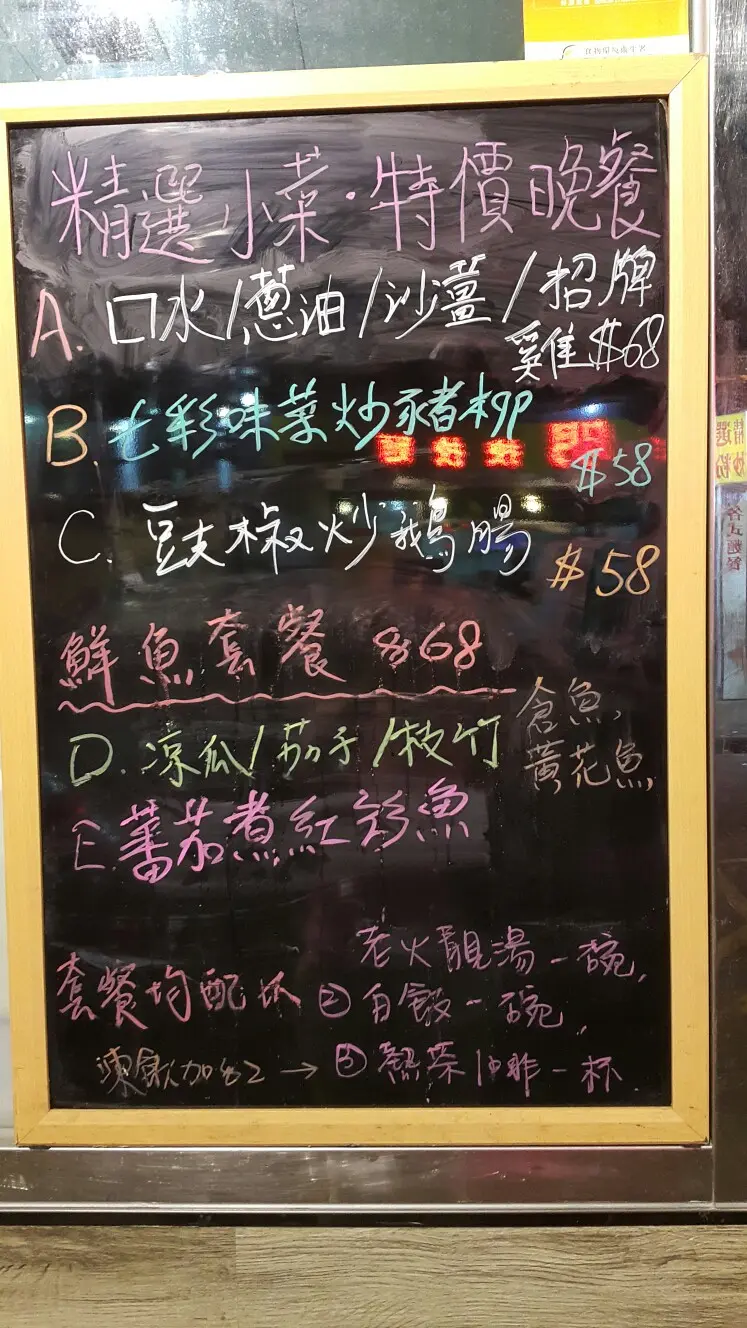 精選小菜·特價晚餐
A. 口水/蔥油/沙薑/招牌
雞 $68
B. 七彩味菜炒豬柳
$58
C. 豉椒炒鵝腸
$58
鮮魚套餐 $68
倉魚,
黃花魚
D. 凉瓜/茄子/枝竹
E. 蕃茄煮紅衫魚
老火靚湯一碗,
套餐均配
② 白飯一碗,
凍飲加$2 → ③ 熱茶 咖啡一杯.
精選
炒粉
各式麵餐